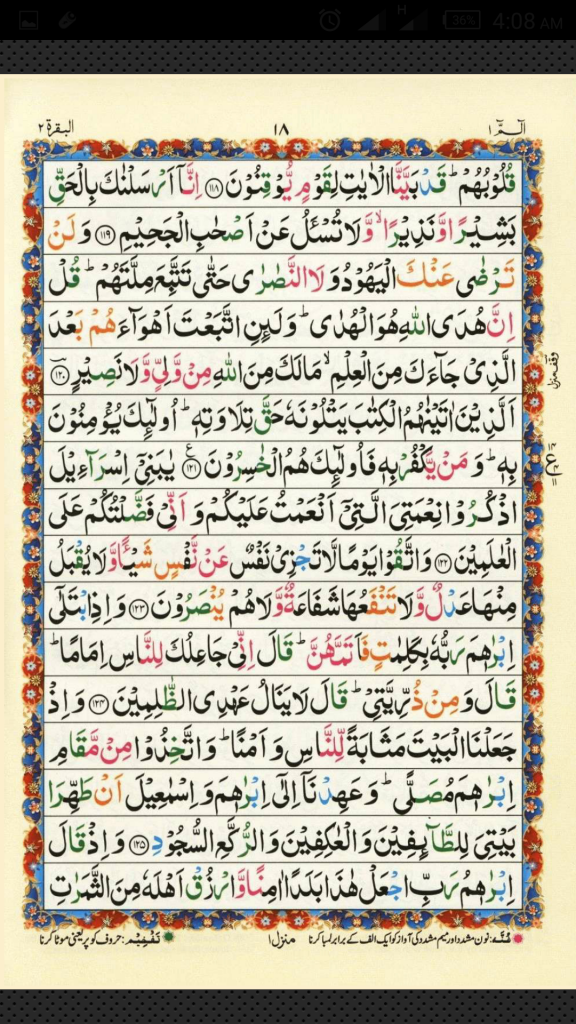 H 36% 4:08 AM
الٓـمّٓ ١ ١٨ البقرة ٢
قُلُوْبُهُمْ ؕ قَدْ بَيَّنَّا الْاٰيٰتِ لِقَوْمٍ يُّوْقِنُوْنَ ﴿۱۱۸﴾ اِنَّاۤ اَرْسَلْنٰكَ بِالْحَقِّ
بَشِيْرًا وَّنَذِيْرًا ۙ وَّلَا تُسْـَٔلُ عَنْ اَصْحٰبِ الْجَحِيْمِ ﴿۱۱۹﴾ وَلَنْ
تَرْضٰى عَنْكَ الْيَهُوْدُ وَلَا النَّصٰرٰى حَتّٰى تَتَّبِعَ مِلَّتَهُمْ ؕ قُلْ
اِنَّ هُدَى اللّٰهِ هُوَ الْهُدٰى ؕ وَلَىِٕنِ اتَّبَعْتَ اَهْوَآءَهُمْ بَعْدَ
الَّذِىْ جَآءَكَ مِنَ الْعِلْمِ ۙ مَا لَكَ مِنَ اللّٰهِ مِنْ وَّلِىٍّ وَّلَا نَصِيْرٍ ﴿۱۲۰﴾
اَلَّذِيْنَ اٰتَيْنٰهُمُ الْكِتٰبَ يَتْلُوْنَهٗ حَقَّ تِلَاوَتِهٖ ؕ اُولٰٓىِٕكَ يُؤْمِنُوْنَ
بِهٖ ؕ وَمَنْ يَّكْفُرْ بِهٖ فَاُولٰٓىِٕكَ هُمُ الْخٰسِرُوْنَ ﴿۱۲۱﴾ يٰبَنِىْۤ اِسْرَآءِيْلَ
اذْكُرُوْا نِعْمَتِىَ الَّتِىْۤ اَنْعَمْتُ عَلَيْكُمْ وَاَنِّىْ فَضَّلْتُكُمْ عَلَى
الْعٰلَمِيْنَ ﴿۱۲۲﴾ وَاتَّقُوْا يَوْمًا لَّا تَجْزِىْ نَفْسٌ عَنْ نَّفْسٍ شَيْـًٔا وَّلَا يُقْبَلُ
مِنْهَا عَدْلٌ وَّلَا تَنْفَعُهَا شَفَاعَةٌ وَّلَا هُمْ يُنْصَرُوْنَ ﴿۱۲۳﴾ وَاِذِ ابْتَلٰٓى
اِبْرٰهٖمَ رَبُّهٗ بِكَلِمٰتٍ فَاَتَمَّهُنَّ ؕ قَالَ اِنِّىْ جَاعِلُكَ لِلنَّاسِ اِمَامًا ؕ
قَالَ وَمِنْ ذُرِّيَّتِىْ ؕ قَالَ لَا يَنَالُ عَهْدِى الظّٰلِمِيْنَ ﴿۱۲۴﴾ وَاِذْ
جَعَلْنَا الْبَيْتَ مَثَابَةً لِّلنَّاسِ وَاَمْنًا ؕ وَاتَّخِذُوْا مِنْ مَّقَامِ
اِبْرٰهٖمَ مُصَلًّى ؕ وَعَهِدْنَاۤ اِلٰٓى اِبْرٰهٖمَ وَاِسْمٰعِيْلَ اَنْ طَهِّرَا
بَيْتِىَ لِلطَّآىِٕفِيْنَ وَالْعٰكِفِيْنَ وَالرُّكَّعِ السُّجُوْدِ ﴿۱۲۵﴾ وَاِذْ قَالَ
اِبْرٰهٖمُ رَبِّ اجْعَلْ هٰذَا بَلَدًا اٰمِنًا وَّارْزُقْ اَهْلَهٗ مِنَ الثَّمَرٰتِ
غُنَّه: نون مشدد اور میم مشدد کی آواز کو ایک الف کے برابر لمبا کرنا منزل ١ تَفْخِيْم: حروف کو پُر یعنی موٹا کرنا